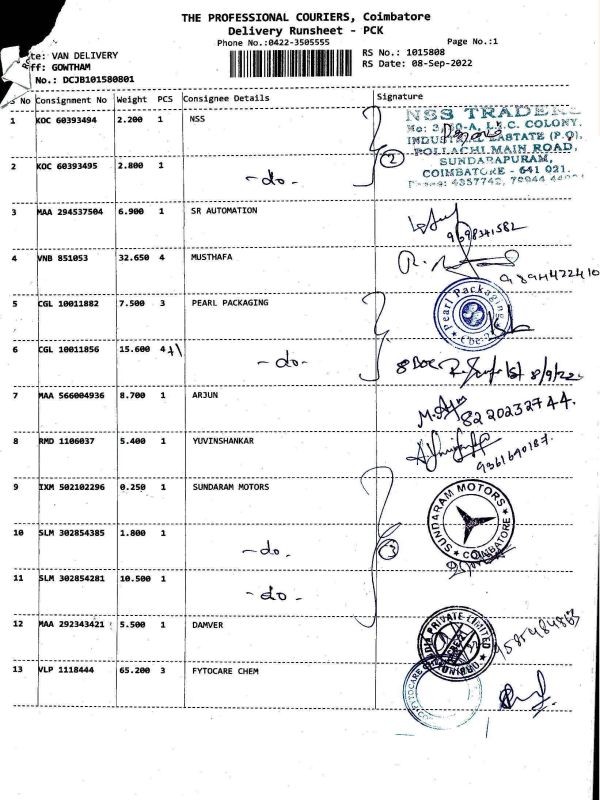 THE PROFESSIONAL COURIERS, Coimbatore
Delivery Runsheet - PCK
Phone No.:0422-3505555 Page No.:1
te: VAN DELIVERY RS No.: 1015808
ff: GOWTHAM RS Date: 08-Sep-2022
No.: DCJB101580801
No Consignment No Weight PCS Consignee Details Signature
1 KOC 60393494 2.200 1 NSS
NSS TRADERS
INDUSTRIAL EASTATE (P.O),
POLLACHI MAIN ROAD,
SUNDARAPURAM,
COIMBATORE - 641 021.
2 KOC 60393495 2.800 1 -do- 2
3 MAA 294537504 6.900 1 SR AUTOMATION
4 VNB 851053 32.650 4 MUSTHAFA
5 CGL 10011882 7.500 3 PEARL PACKAGING
Pearl Packaging
6 CGL 10011856 15.600 4 -do- 8/9/22
7 MAA 566004936 8.700 1 ARJUN 8220232744.
8 RMD 1106037 5.400 1 YUVINSHANKAR 9361690187.
9 IXM 502102296 0.250 1 SUNDARAM MOTORS
SUNDARAM MOTORS
COIMBATORE
10 SLM 302854385 1.800 1 -do. 3
11 SLM 302854281 10.500 1 -do.
12 MAA 292343421 5.500 1 DAMVER
PRIVATE LIMITED
13 VLP 1118444 65.200 3 FYTOCARE CHEM
FYTOCARE